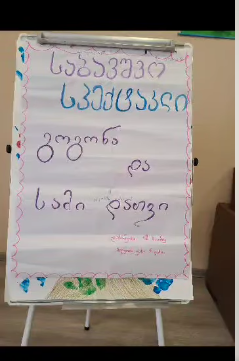 საბავშვო
სპექტაკლი
გოგონა
და
სამი დათვი